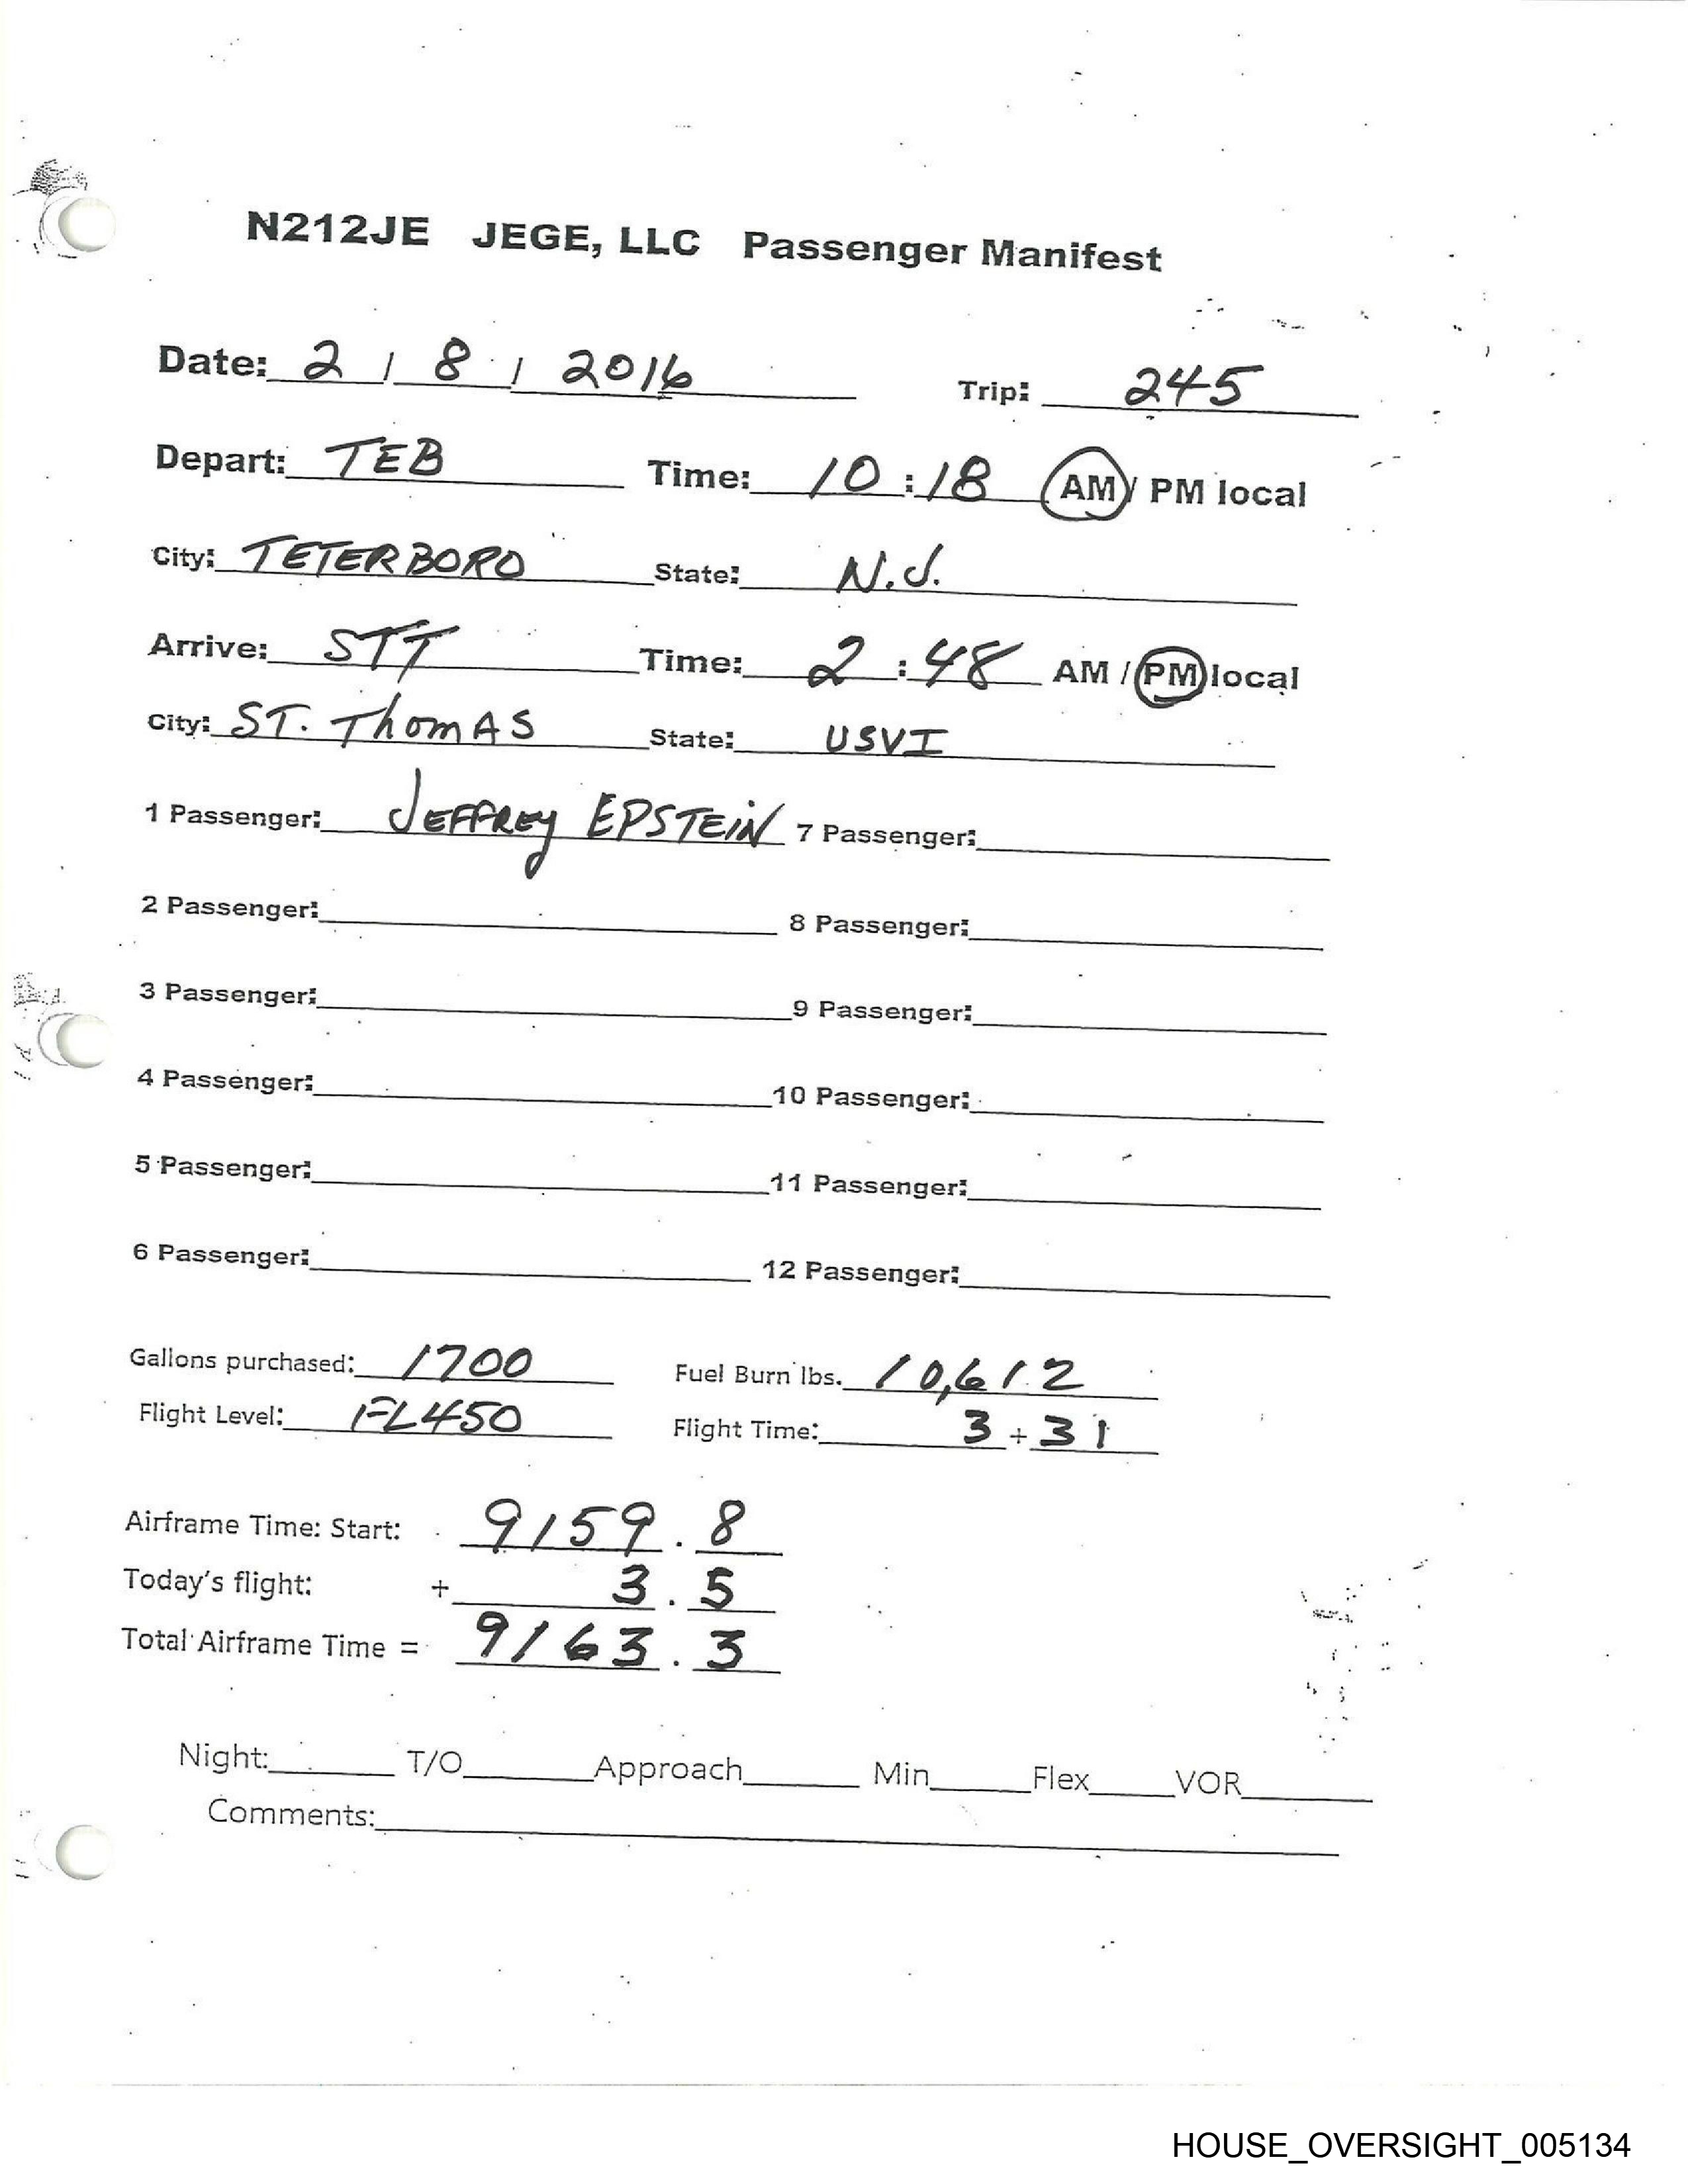 N212JE JEGE, LLC Passenger Manifest
Date: 2 / 8 / 2016 Trip: 245
Depart: TEB Time: 10:18 AM / PM local
City: TETERBORO State: N.J.
Arrive: STT Time: 2:48 AM / PM local
City: ST. ThomAS State: USVI
1 Passenger: JEFFREy EPSTEiN 7 Passenger:
2 Passenger: 8 Passenger:
3 Passenger: 9 Passenger:
4 Passenger: 10 Passenger:
5 Passenger: 11 Passenger:
6 Passenger: 12 Passenger:
Gallons purchased: 1700 Fuel Burn lbs. 10,612
Flight Level: FL450 Flight Time: 3 + 31
Airframe Time: Start: 9159.8
Today's flight: + 3.5
Total Airframe Time = 9163.3
Night: T/O Approach Min Flex VOR
Comments:
HOUSE_OVERSIGHT_005134